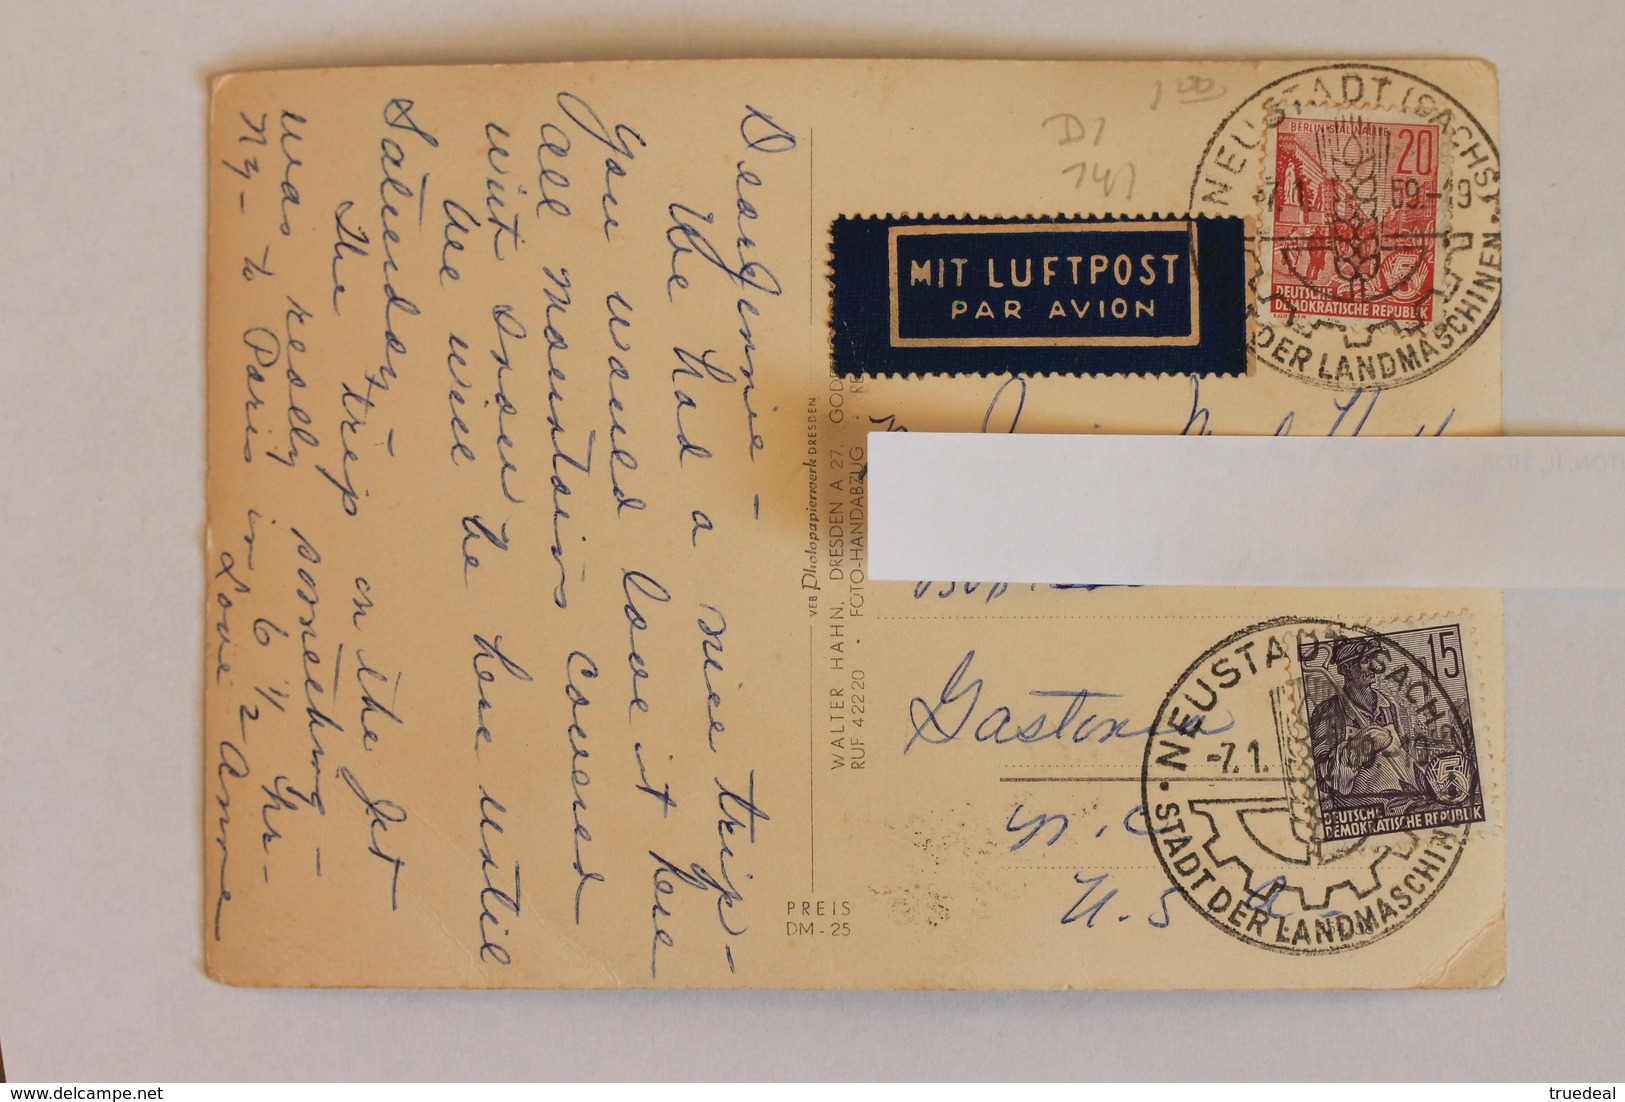 Dear Jennie -
We had a nice trip -
You would love it here
All mountains covered
wit snow
We will be here until
Saturday
The trip on the Jet
was really something -
Ny - to Paris in 6 1/2 hr -
Love Anne
VEB Photopapierwerk DRESDEN
WALTER HAHN, DRESDEN A 27.
RUF 42220 · FOTO-HANDABZUG
PREIS
DM -.25
D1
1.00
MIT LUFTPOST
PAR AVION
BERLIN-STALINALLEE
20
DEUTSCHE
DEMOKRATISCHE REPUBLIK
NEUSTADT (SACHS)
-7.1. 59.-19
STADT DER LANDMASCHINEN
Gastonia
N.C.
U.S.A.
15
DEUTSCHE
DEMOKRATISCHE REPUBLIK
NEUSTADT (SACHS)
-7.1.
STADT DER LANDMASCHINEN
delcampe.net
truedeal